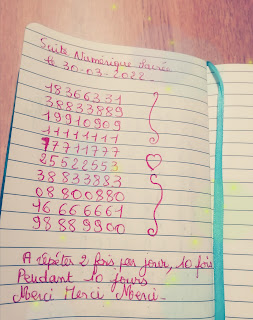 Suite Numérique Sacrée
le 30-03-2022
18366331
38833889
19910909
11111111
77711777
25522553
38833883
08800880
16666661
98889900
A répéter 2 fois par jour, 10 fois
Pendant 10 jours
Merci Merci Merci